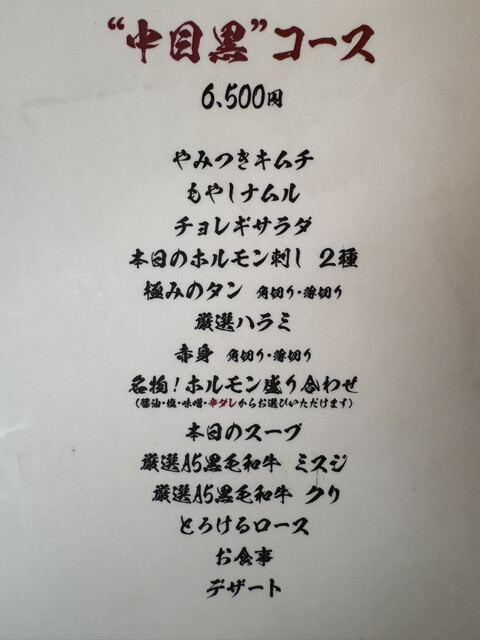 “中目黒”コース
6,500円
やみつきキムチ
もやしナムル
チョレギサラダ
本日のホルモン刺し 2種
極みのタン 角切り・薄切り
厳選ハラミ
赤身 角切り・薄切り
名物!ホルモン盛り合わせ
(醤油・塩・味噌・辛ダレからお選びいただけます)
本日のスープ
厳選A5黒毛和牛 ミスジ
厳選A5黒毛和牛 クリ
とろけるロース
お食事
デザート